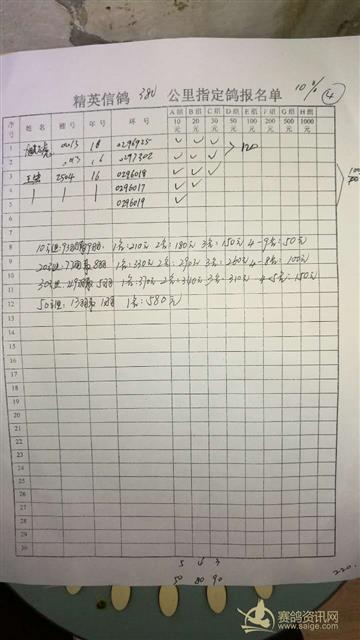 10% ④
精英信鸽 380 公里指定鸽报名单
序号 姓名 棚号 年号 环号 A组10元 B组20元 C组30元 D组50元 E组100元 F组200元 G组500元 H组1000元
1 0013 18 0296925 ✓ ✓ ✓ 120
2 0013 16 0297302 ✓ ✓ ✓
3 王 2504 16 0296018 ✓ ✓ ✓
4 0296017 ✓ ✓
5 0296019 ✓
6
7
8 1名:210元 2名:180元 3名:150元 4-9名:50元
9 1名:330元 2名:290元 3名:260元 4-8名:100元
10 1名:370元 2名:340元 3名:310元 4-5名:150元
11
12 1名:580元
13
14
15
16
17
18
19
20
21
22
23
24
25
26
27
28
29
30
5 4 3
50 80 90
220
赛鸽资讯网
www.saige.com